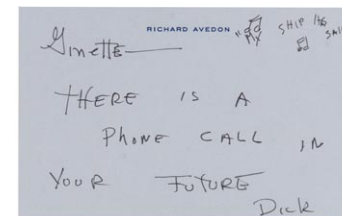 RICHARD AVEDON
Ginette—
SHIP
THERE IS A
PHONE CALL IN
YOUR FUTURE
Dick